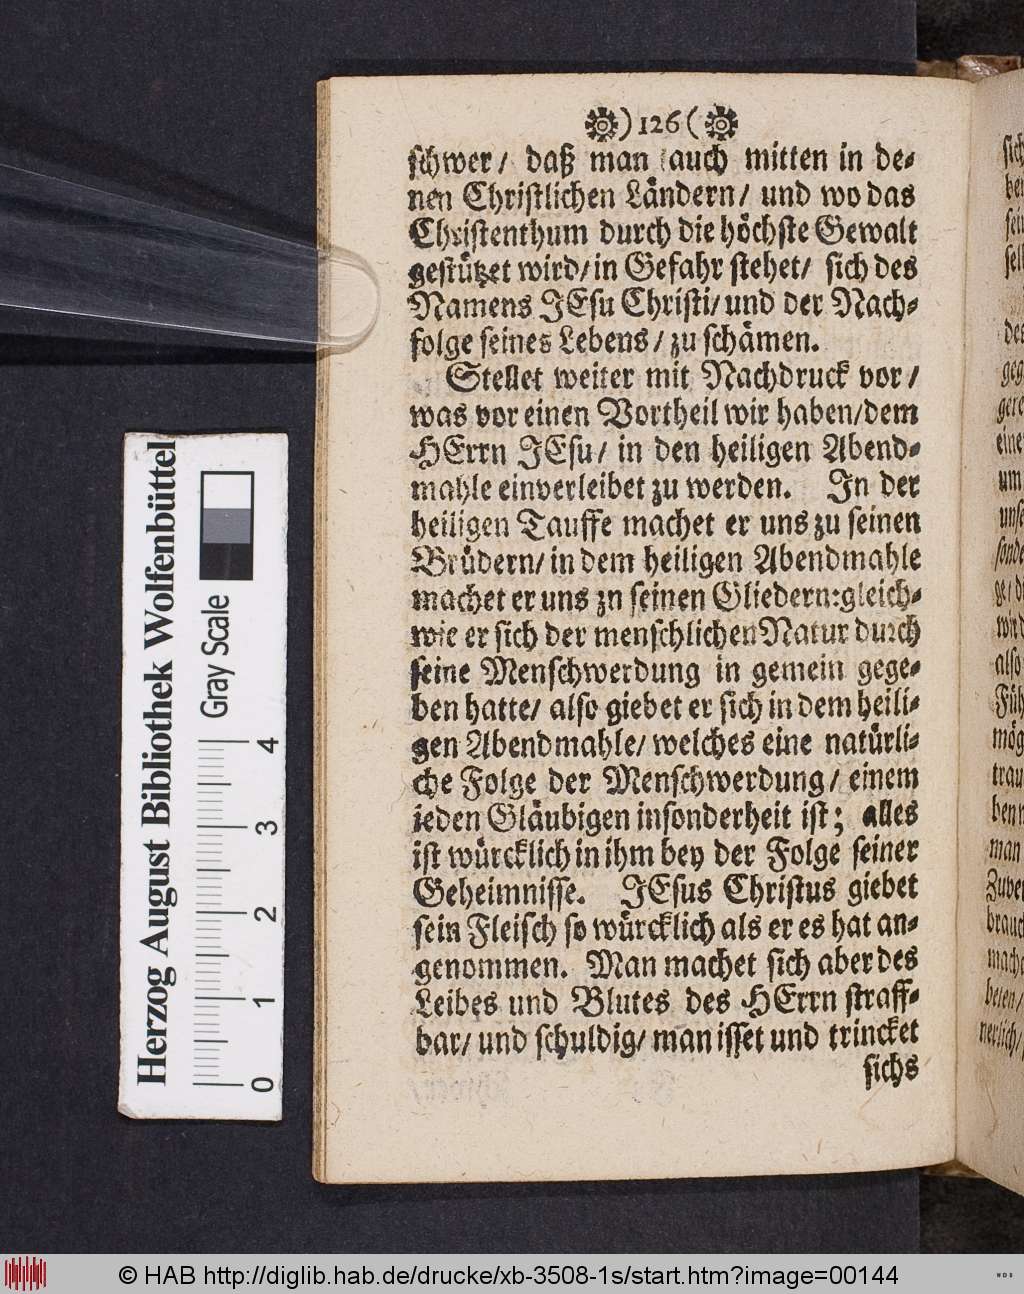 )126(
schwer/ daß man auch mitten in de-
nen Christlichen Ländern/ und wo das
Christenthum durch die höchste Gewalt
gestützet wird/ in Gefahr stehet/ sich des
Namens JEsu Christi/ und der Nach-
folge seines Lebens/ zu schämen.
Stellet weiter mit Nachdruck vor/
was vor einen Vortheil wir haben/ dem
HErrn JEsu/ in den heiligen Abend-
mahle einverleibet zu werden. In der
heiligen Tauffe machet er uns zu seinen
Brüdern/ in dem heiligen Abendmahle
machet er uns zn seinen Gliedern: gleich-
wie er sich der menschlichen Natur durch
seine Menschwerdung in gemein gege-
ben hatte/ also giebet er sich in dem heili-
gen Abendmahle/ welches eine natürli-
che Folge der Menschwerdung/ einem
ieden Gläubigen insonderheit ist; alles
ist würcklich in ihm bey der Folge seiner
Geheimnisse. JEsus Christus giebet
sein Fleisch so würcklich als er es hat an-
genommen. Man machet sich aber des
Leibes und Blutes des HErrn straff-
bar/ und schuldig/ man isset und trincket
sichs
Herzog August Bibliothek Wolfenbüttel
Gray Scale
0 1 2 3 4
© HAB http://diglib.hab.de/drucke/xb-3508-1s/start.htm?image=00144